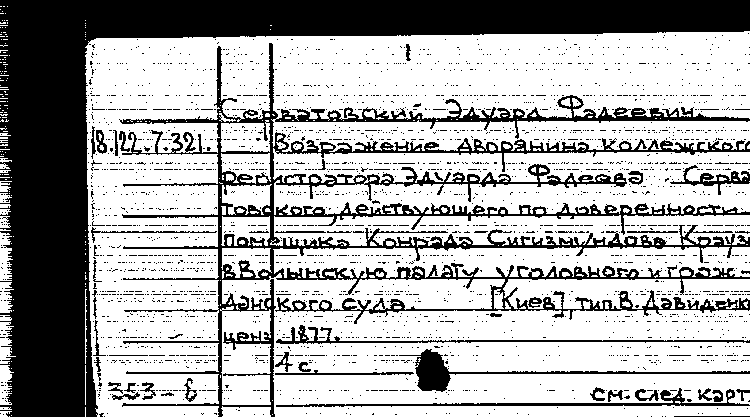 Серватовский, Эдуард Фадеевич.
18.122.7.321. Возражение дворянина, коллежского
регистратора Эдуарда Фадеева Серва
товского, действующего по доверенности
помещика Конрада Сигизмундова Крауз
в Волынскую палату уголовного и граж-
данского суда. [Киев], тип. В. Давиденко
ценз. 1877.
4 с.
353-б см. след. карт